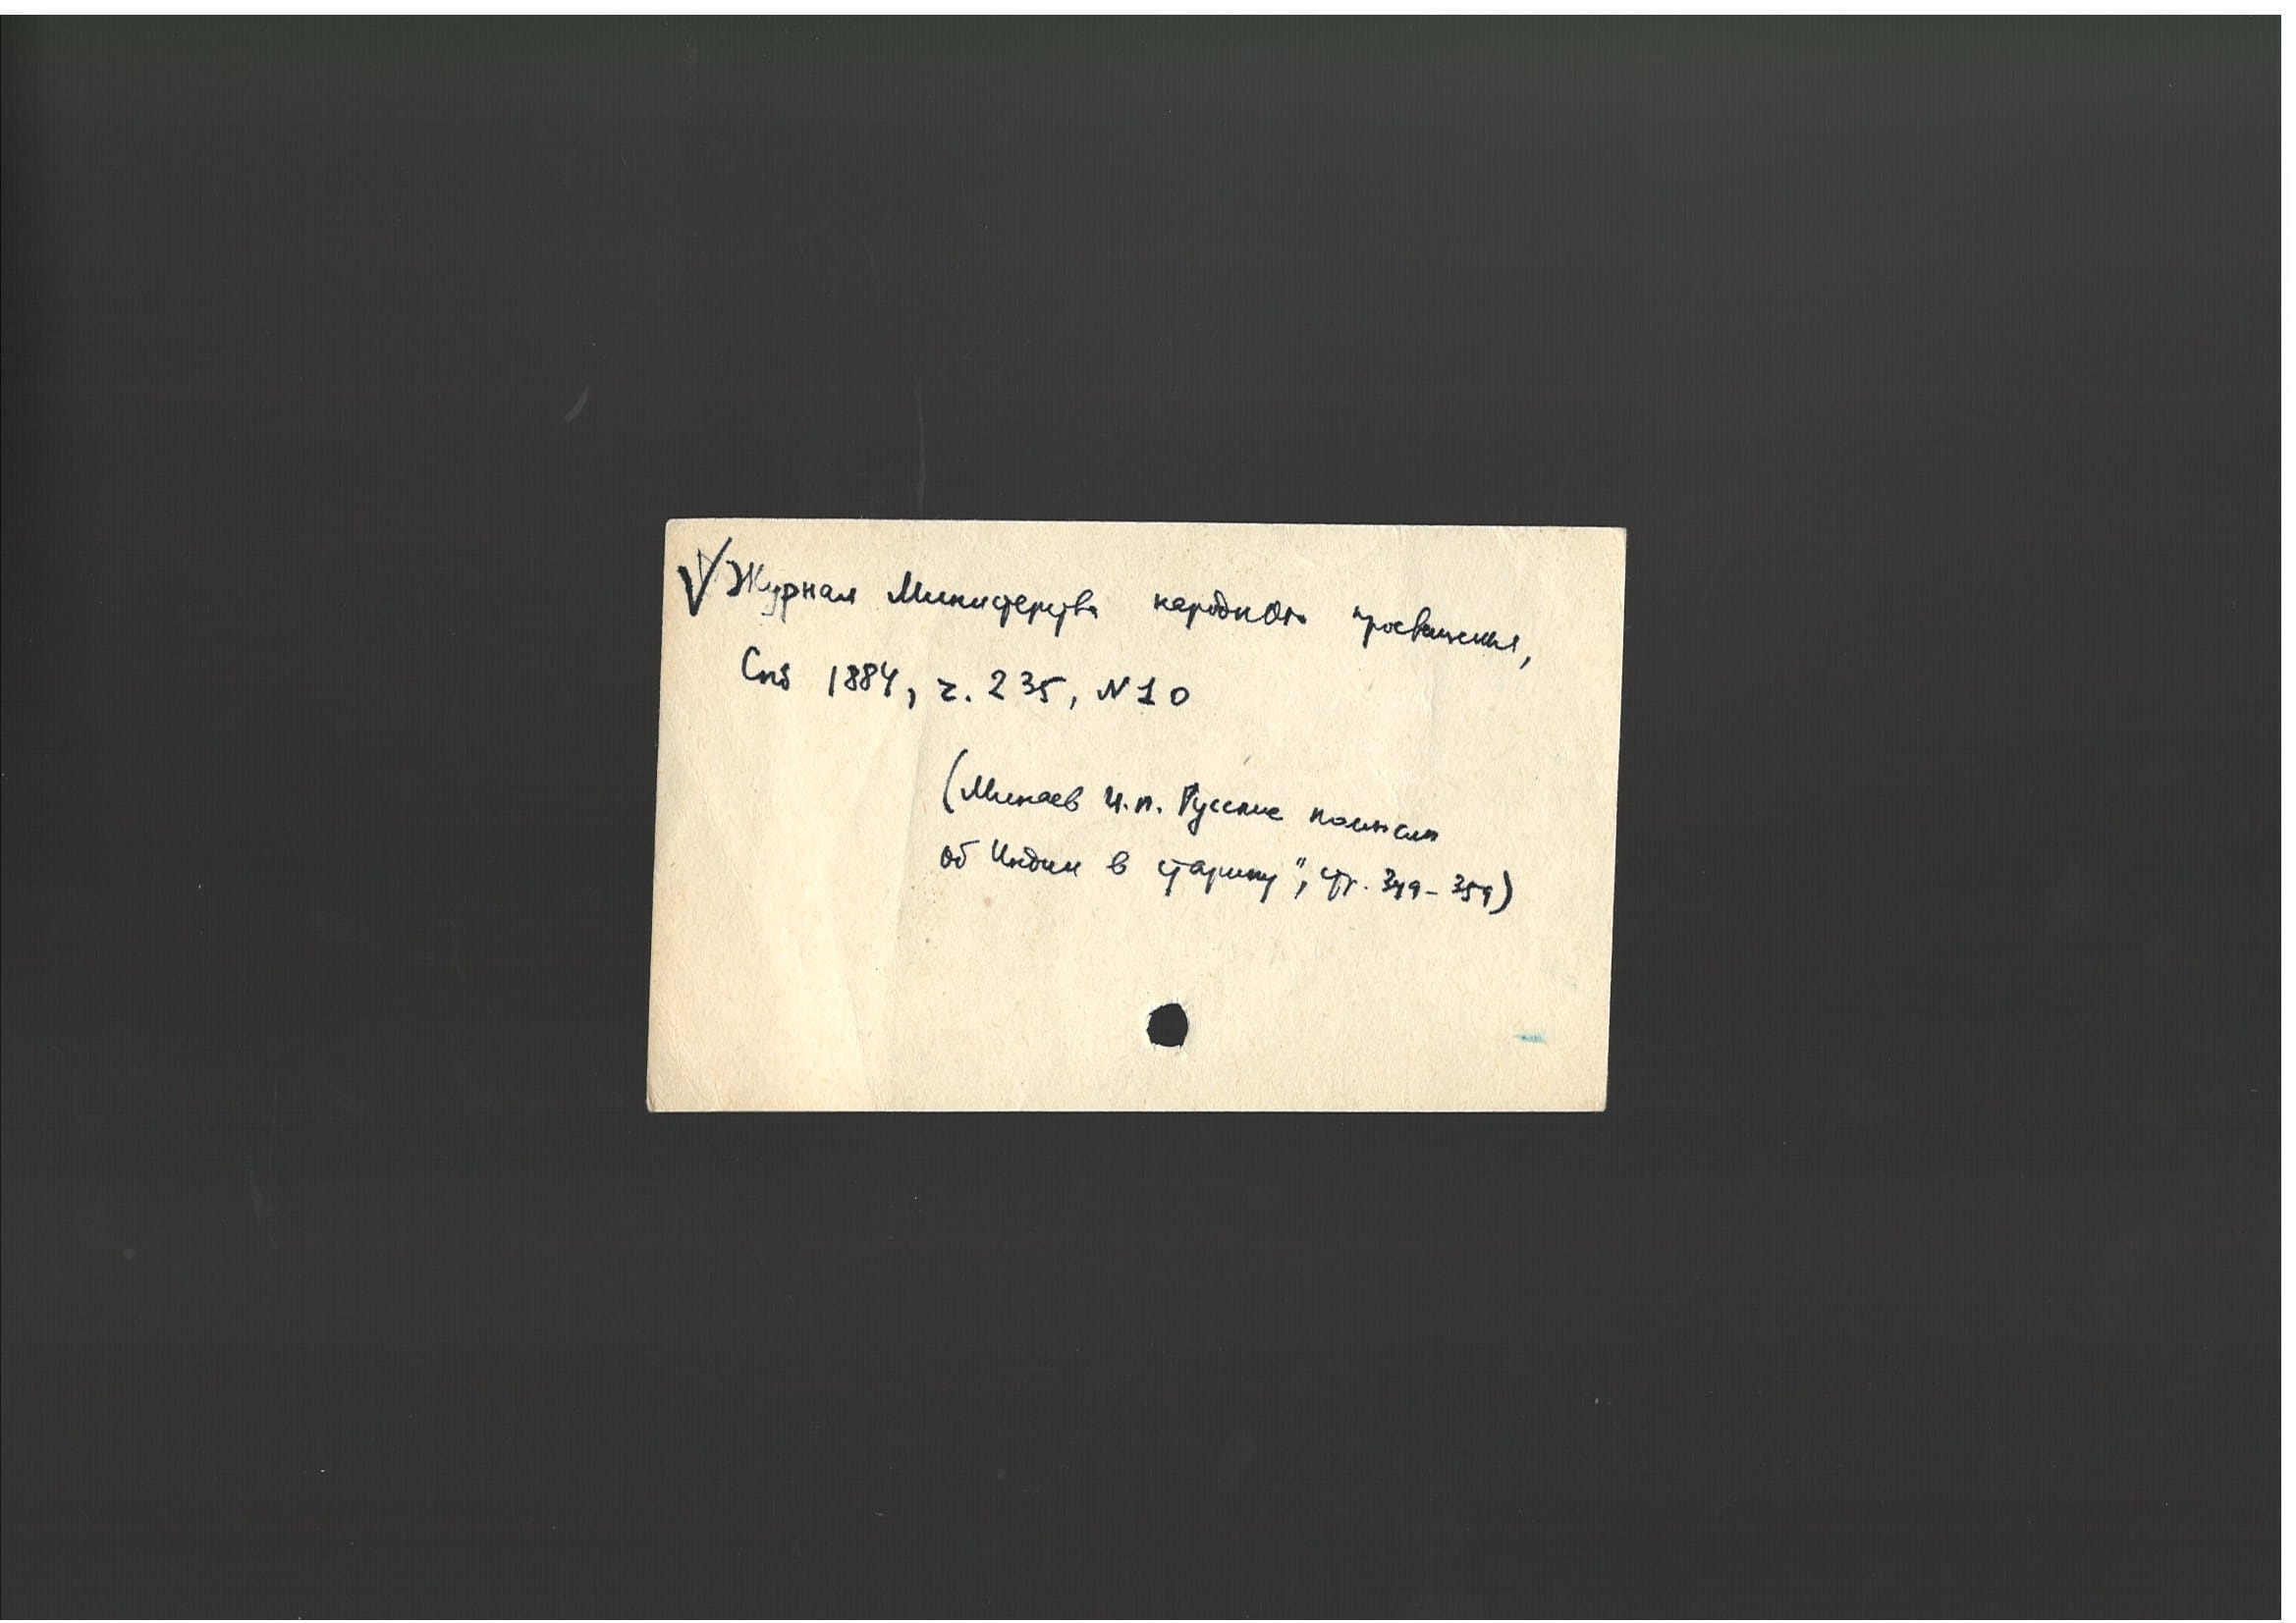 √ Журнал Министерства народного просвещения,
Спб 1884, ч. 235, N 10
(Минаев И.П. Русские помыслы
об Индии в старину", стр. 349-359)